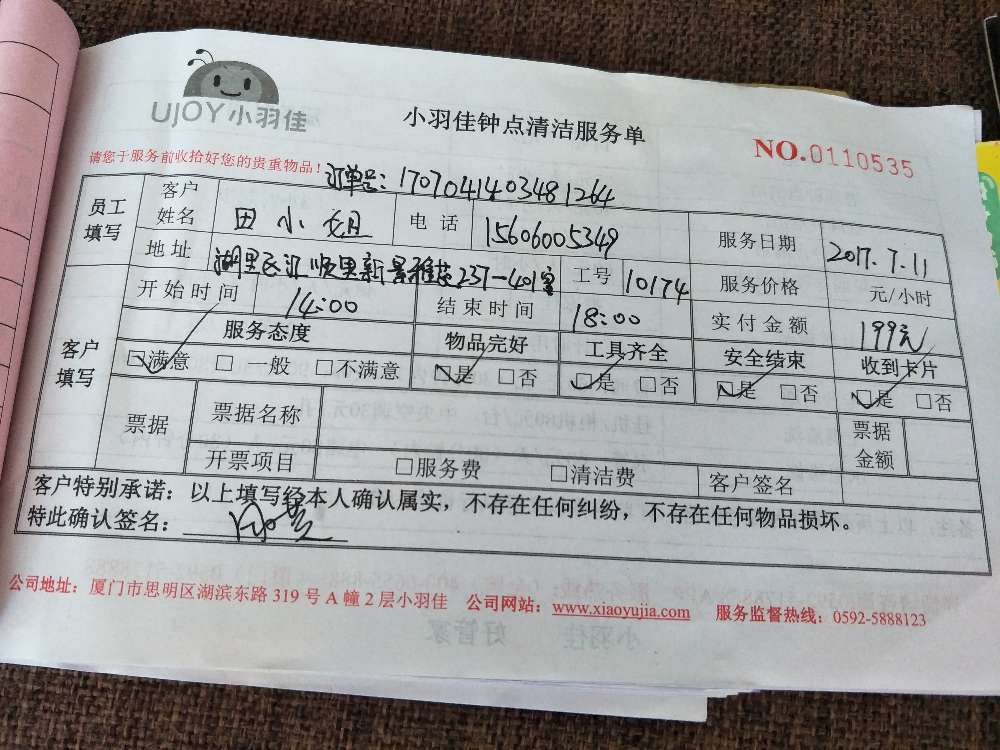 UJOY小羽佳
小羽佳钟点清洁服务单
NO.0110535
请您于服务前收拾好您的贵重物品！
订单号：1707041403481264
员工填写 客户姓名 田小姐 电话 15606005349 服务日期 2017.7.11
地址 湖里区汇顺里新景雅苑237-401室 工号 10174 服务价格 元/小时
开始时间 14:00 结束时间 18:00 实付金额 199元
客户填写 服务态度 物品完好 工具齐全 安全结束 收到卡片
☑满意 □一般 □不满意 ☑是 □否 ☑是 □否 ☑是 □否 ☑是 □否
票据 票据名称 票据金额
开票项目 □服务费 □清洁费 客户签名
客户特别承诺：以上填写经本人确认属实，不存在任何纠纷，不存在任何物品损坏。
特此确认签名：
公司地址：厦门市思明区湖滨东路 319 号 A 幢 2 层小羽佳 公司网站：www.xiaoyujia.com 服务监督热线：0592-5888123